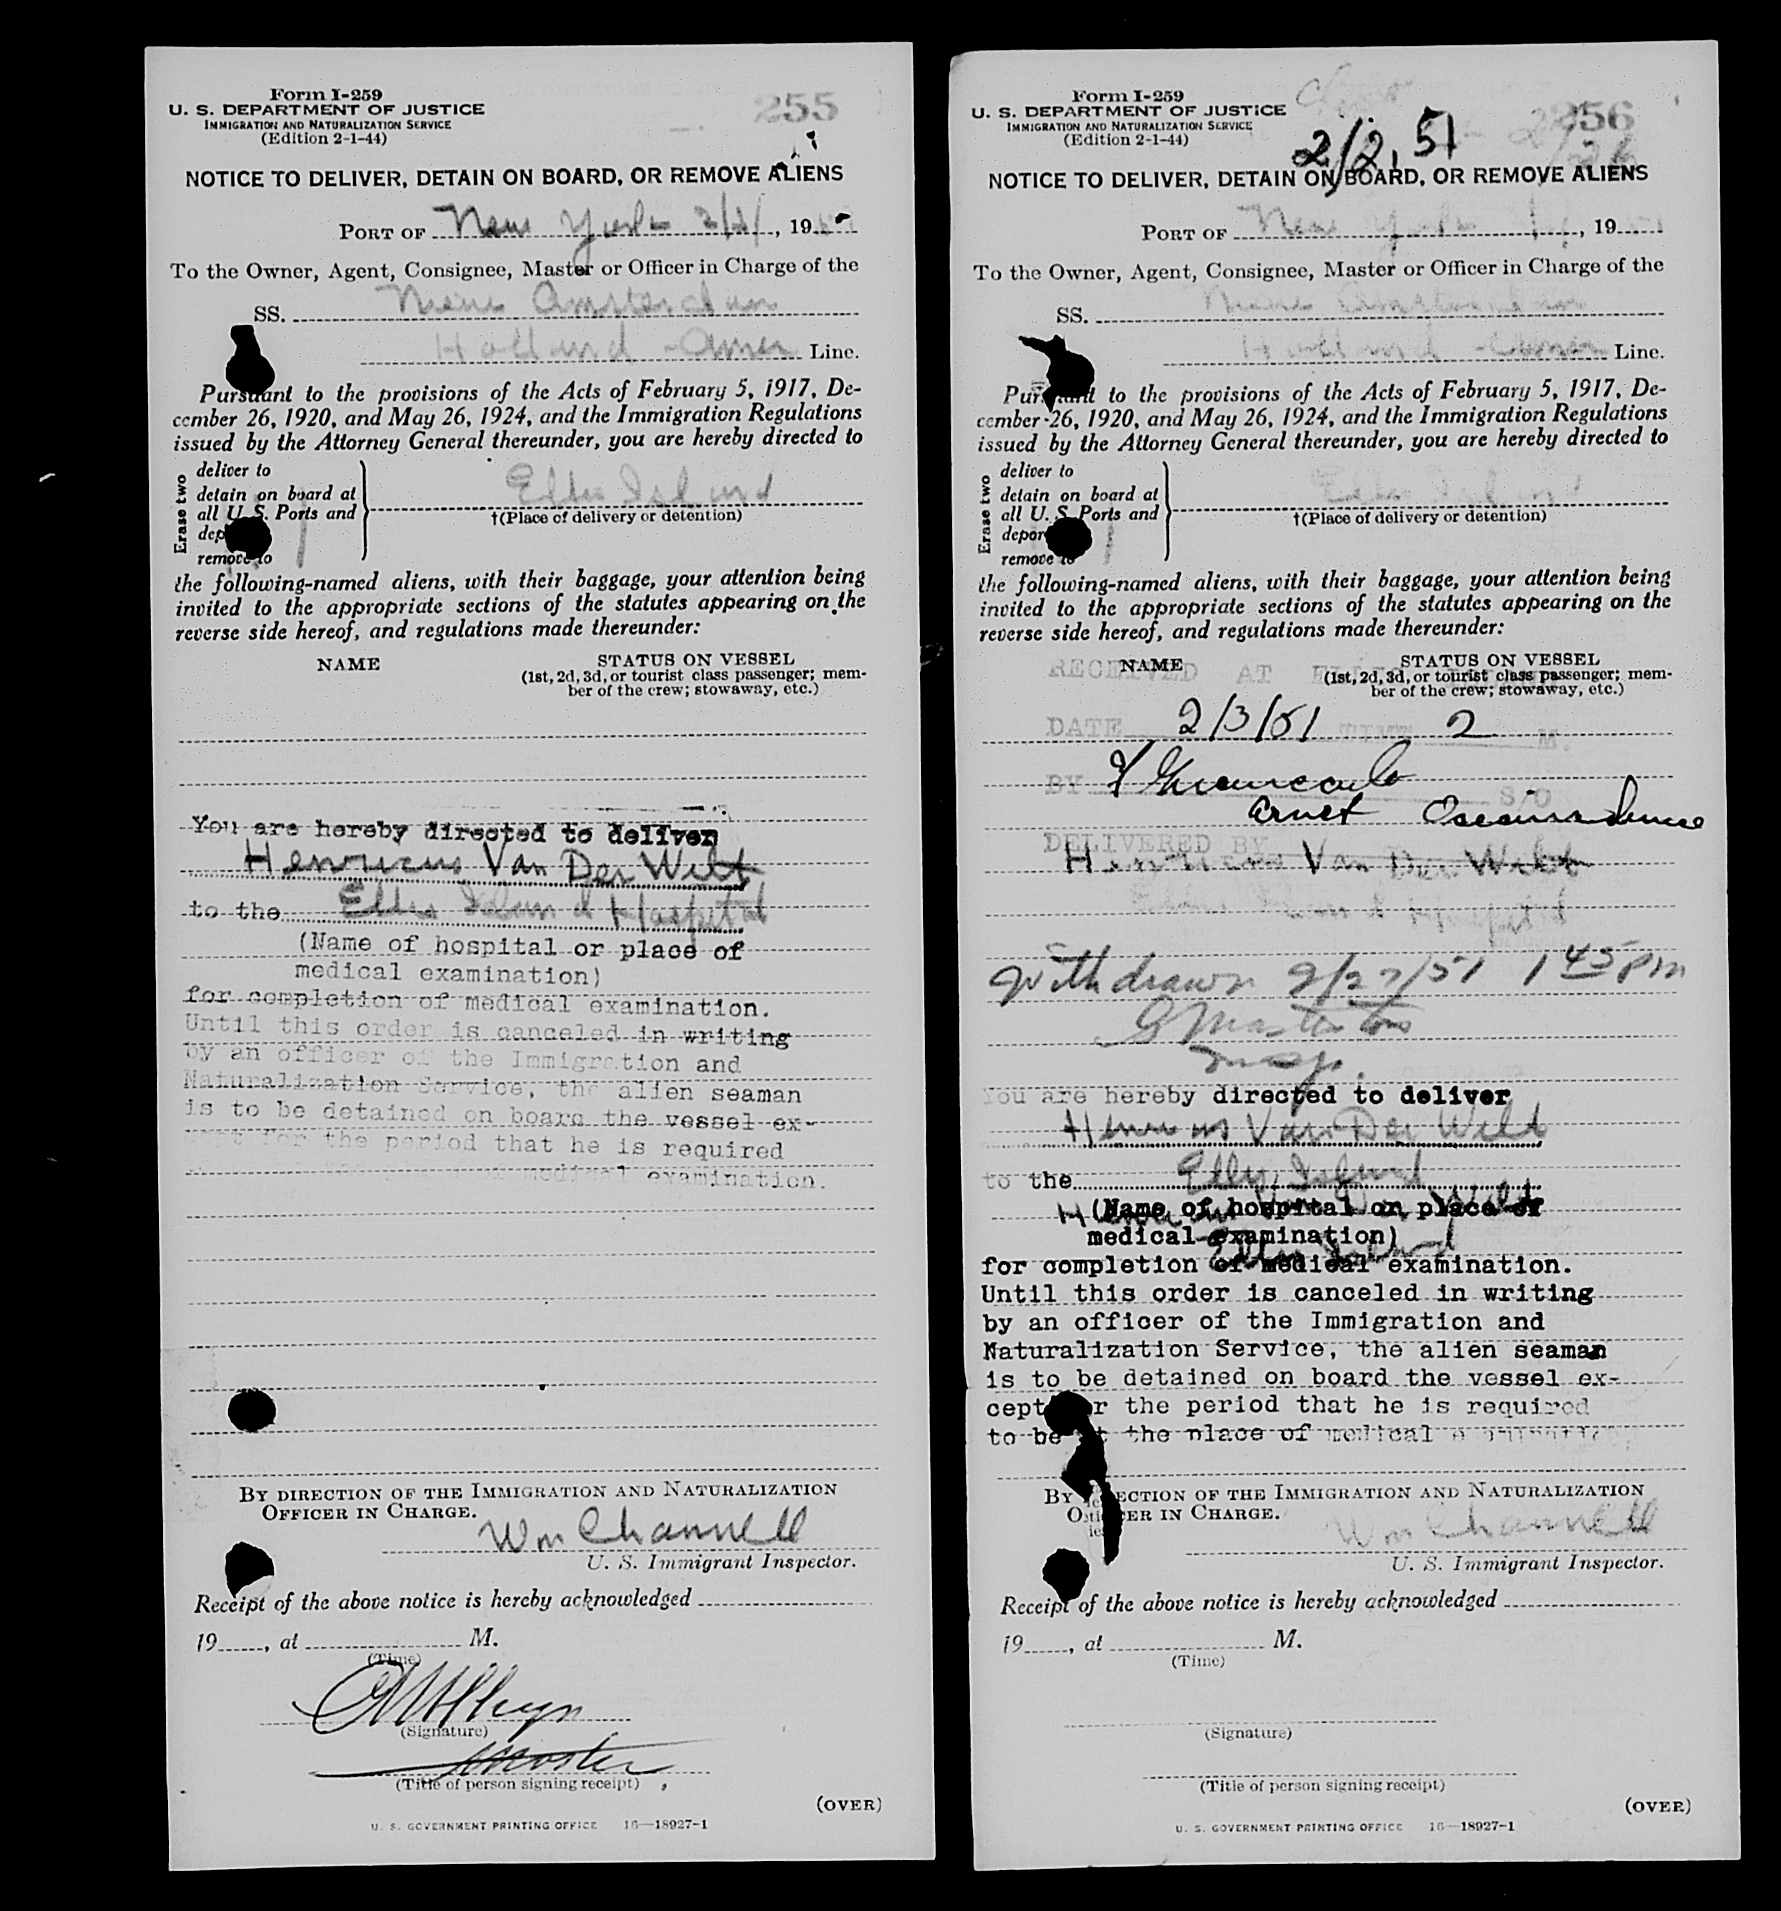 Form I-259
U. S. DEPARTMENT OF JUSTICE
IMMIGRATION AND NATURALIZATION SERVICE
(Edition 2-1-44)
255
NOTICE TO DELIVER, DETAIN ON BOARD, OR REMOVE ALIENS
PORT OF New York 2/2/, 19
To the Owner, Agent, Consignee, Master or Officer in Charge of the
SS. Nieuw Amsterdam
Holland-Amer Line.
Pursuant to the provisions of the Acts of February 5, 1917, De-
cember 26, 1920, and May 26, 1924, and the Immigration Regulations
issued by the Attorney General thereunder, you are hereby directed to
Erase two
deliver to
detain on board at
all U. S. Ports and
dep
remove to
Ellis Island
†(Place of delivery or detention)
the following-named aliens, with their baggage, your attention being
invited to the appropriate sections of the statutes appearing on the
reverse side hereof, and regulations made thereunder:
NAME
STATUS ON VESSEL
(1st, 2d, 3d, or tourist class passenger; mem-
ber of the crew; stowaway, etc.)
You are hereby directed to deliver
Henricus Van Der Wilt
to the Ellis Island Hospital
(Name of hospital or place of
medical examination)
for completion of medical examination.
Until this order is canceled in writing
by an officer of the Immigration and
Naturalization Service, the alien seaman
is to be detained on board the vessel ex-
cept for the period that he is required
medical examination.
BY DIRECTION OF THE IMMIGRATION AND NATURALIZATION
OFFICER IN CHARGE.
Wm Channell
U. S. Immigrant Inspector.
Receipt of the above notice is hereby acknowledged
19, at M.
(Time)
(Signature)
Master
(Title of person signing receipt)
(OVER)
U. S. GOVERNMENT PRINTING OFFICE 16—18927-1
Form I-259
U. S. DEPARTMENT OF JUSTICE
IMMIGRATION AND NATURALIZATION SERVICE
(Edition 2-1-44)
256
2/2, 51
NOTICE TO DELIVER, DETAIN ON BOARD, OR REMOVE ALIENS
PORT OF New York, 19
To the Owner, Agent, Consignee, Master or Officer in Charge of the
SS. Nieuw Amsterdam
Holland-Amer Line.
to the provisions of the Acts of February 5, 1917, De-
cember 26, 1920, and May 26, 1924, and the Immigration Regulations
issued by the Attorney General thereunder, you are hereby directed to
Erase two
deliver to
detain on board at
all U. S. Ports and
depor
remove to
Ellis Island
†(Place of delivery or detention)
the following-named aliens, with their baggage, your attention being
invited to the appropriate sections of the statutes appearing on the
reverse side hereof, and regulations made thereunder:
NAME
STATUS ON VESSEL
(1st, 2d, 3d, or tourist class passenger; mem-
ber of the crew; stowaway, etc.)
RECEIVED AT ELLIS
DATE 2/3/51 TIME 2 M.
BY
S/O
DELIVERED BY
Henricus Van Der Wilt
Ellis Island Hospital
Withdrawn 2/27/51 1 45 PM
Insp.
You are hereby directed to deliver
Henricus Van Der Wilt
to the Ellis Island
(Name of hospital or place of
medical examination)
for completion of medical examination.
Until this order is canceled in writing
by an officer of the Immigration and
Naturalization Service, the alien seaman
is to be detained on board the vessel ex-
cept for the period that he is required
to be at the place of medical examination.
BY DIRECTION OF THE IMMIGRATION AND NATURALIZATION
OFFICER IN CHARGE.
Wm Channell
U. S. Immigrant Inspector.
Receipt of the above notice is hereby acknowledged
19, at M.
(Time)
(Signature)
(Title of person signing receipt)
(OVER)
U. S. GOVERNMENT PRINTING OFFICE 16—18927-1